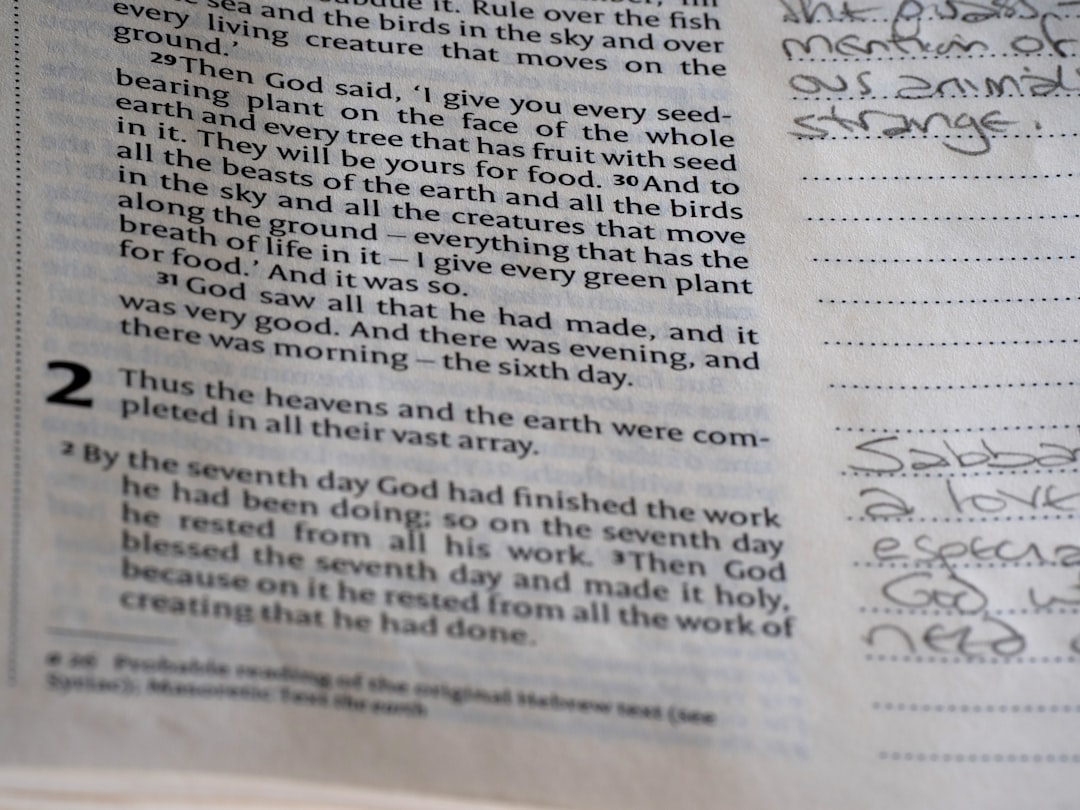 it. Rule over the fish
sea and the birds in the sky and over
every living creature that moves on the
ground.’
29 Then God said, ‘I give you every seed-
bearing plant on the face of the whole
earth and every tree that has fruit with seed
in it. They will be yours for food. 30 And to
all the beasts of the earth and all the birds
in the sky and all the creatures that move
along the ground – everything that has the
breath of life in it – I give every green plant
for food.’ And it was so.
31 God saw all that he had made, and it
was very good. And there was evening, and
there was morning – the sixth day.
2 Thus the heavens and the earth were com-
pleted in all their vast array.
2 By the seventh day God had finished the work
he had been doing; so on the seventh day
he rested from all his work. 3 Then God
blessed the seventh day and made it holy,
because on it he rested from all the work of
creating that he had done.
26 Probable reading of the original Hebrew text (see
Syriac); Masoretic Text the earth
of
animals
strange.
Sabba
a love
especia
God
need